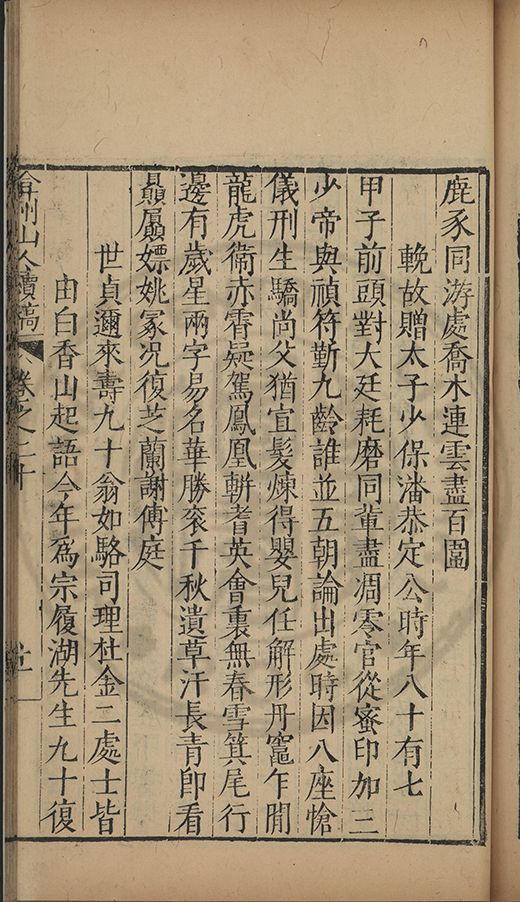 鹿豕同游處喬木連雲盡百圍
輓故贈太子少保潘恭定公時年八十有七
甲子前頭對大廷耗磨同輩盡凋零官從蜜印加三
少帝與禎符靳九齡誰並五朝論出處時因八座愴
儀刑生驕尚父猶宣髮煉得嬰兒任解形丹竈乍閒
龍虎衛赤霄疑駕鳳凰軿耆英會裏無春雪箕尾行
邊有歲星兩字易名華勝衮千秋遺草汗長青即看
贔屭嫖姚冢况復芝蘭謝傅庭
世貞邇來壽九十翁如駱司理杜金二處士皆
由白香山起語今年為宗履湖先生九十復
弇州山人續稿 卷之二十